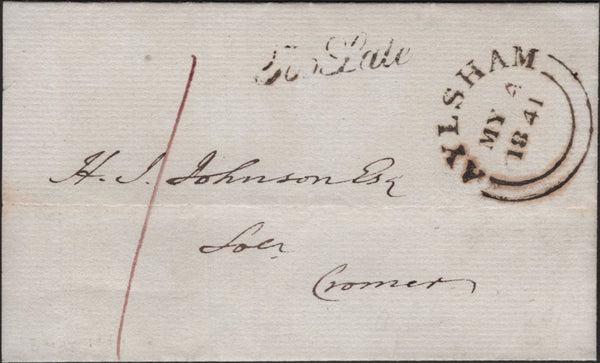 Too Late
AYLSHAM
MY 4
1841
1
H. J. Johnson Esq
Solr
Cromer